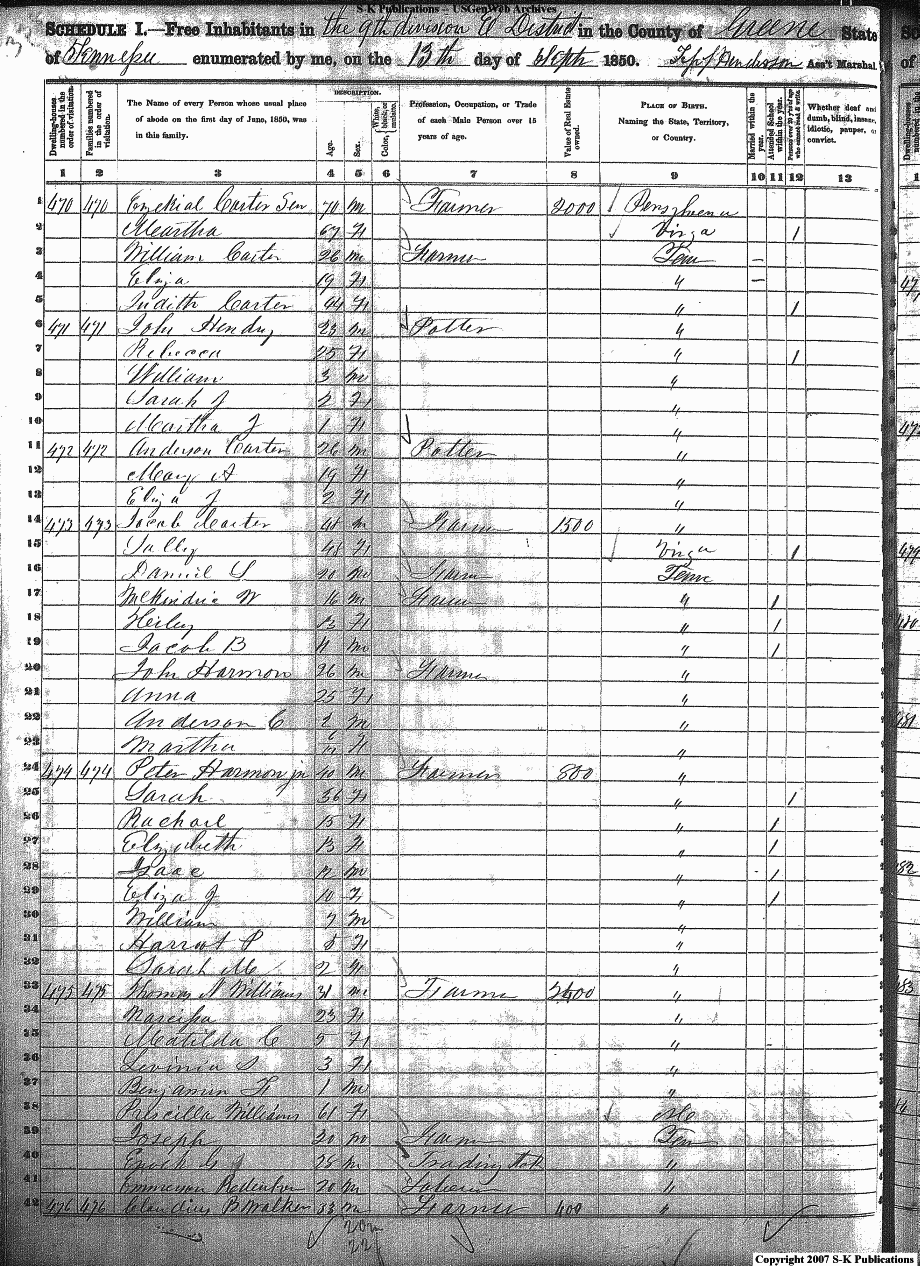 S-K Publications – USGenWeb Archives
SCHEDULE I.—Free Inhabitants in the 9th division E District in the County of Greene State
of Tennessee enumerated by me, on the 13th day of Sept 1850. Henderson Ass't Marshal
Dwelling-houses numbered in the order of visitation. Families numbered in the order of visitation. The Name of every Person whose usual place of abode on the first day of June, 1850, was in this family. DESCRIPTION. Age. Sex. Color, White, black, or mulatto. Profession, Occupation, or Trade of each Male Person over 15 years of age. Value of Real Estate owned. PLACE OF BIRTH. Naming the State, Territory, or Country. Married within the year. Attended School within the year. Persons over 20 y'rs of age who cannot read & write. Whether deaf and dumb, blind, insane, idiotic, pauper, or convict.
1 2 3 4 5 6 7 8 9 10 11 12 13
1 470 470 Ezekial Carter Sen 70 m Farmer 2000
2 Meartha 67 F Virga /
3 William Carter 26 m Farmer Tenn –
4 Eliza 19 F " –
5 Judith Carter 44 F " /
6 471 471 John Hendry 23 m Potter "
7 Rebecca 25 F " /
8 William 3 m "
9 Sarah J 2 F "
10 Martha J 1 F "
11 472 472 Anderson Carter 26 m Potter "
12 Mary A 19 F "
13 Eliza J 2 F "
14 473 473 Jacob Carter 48 m Farmer 1500 "
15 Sally 48 F Virga /
16 Daniel S 20 m Farm Tenn
17 McKindria W 16 m Farmer " /
18 13 F " /
19 Jacob B 11 m " /
20 John Harmon 26 m Farmer "
21 Anna 25 F "
22 Anderson C 2 m "
23 Martha F "
24 474 474 Peter Harmon jr 40 m Farmer 800 "
25 Sarah 36 F " /
26 Rachael 15 F " /
27 Elizabeth 13 F " /
28 Isaac 12 m " /
29 Eliza J 10 F " /
30 William 7 m "
31 Harriot P 5 F "
32 Sarah M 2 F "
33 475 475 Thomas N Williams 31 m Farmer 2400 "
34 Narcissa 23 F "
35 Matilda C 5 F "
36 Levinia S 3 F "
37 Benjamin F 1 m "
38 Priscilla Williams 61 F
39 Joseph 20 m Farm Tenn
40 Enoch G 28 m Trading "
41 20 m "
42 476 476 Claudius B Walker 33 m Farmer 400 "
Copyright 2007 S-K Publications